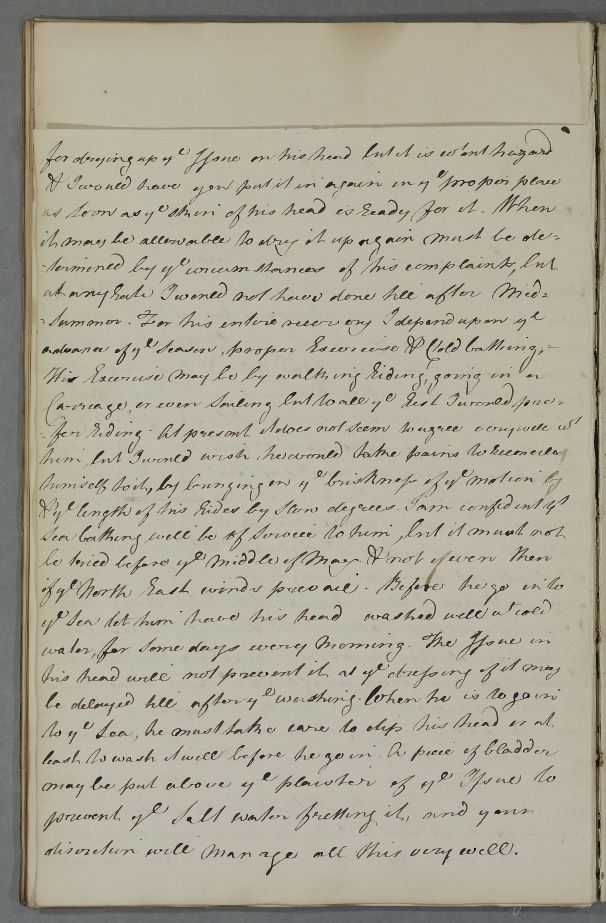 for drying up ye Issue on his head but it is wtout hazard
& I would have you put it in again in ye proper place
as soon as ye skin of his head is ready for it. When
it may be allowable to dry it up again must be de=
=termined by ye circumstances of his complaint, but
at any rate I would not have done till after Mid=
=summer. For his entire recovery I depend upon ye
advance of ye Season, proper Exercise & Cold bathing,-
His Exercise may be by walking Riding, going in a
Carriage, or even Sailing but to all ye Rest I would pre=
=fer Riding. At present it does not seem to agree very well wt
him, but I would wish he would take pains to Reconcile
himself to it, by bringing on ye briskness of ye motion
& ye length of his Rides by slow degrees. I am confident yt
Sea bathing will be of Service to him, but it must not
be tried before ye Middle of May & not even then
if ye North East winds prevail. Before he go into
ye Sea let him have his head washed well wt cold
water, for some days every Morning. The Issue in
his head will not prevent it as ye dressing of it may
be delayed till after ye washing. When he is to go in
to ye Sea, he must take care to dip his head or at
least to wash it well before he go in. A piece of bladder
may be put above ye plaister of ye Issue to
prevent ye Salt water fretting it, and your
discretion will manage all this very well.